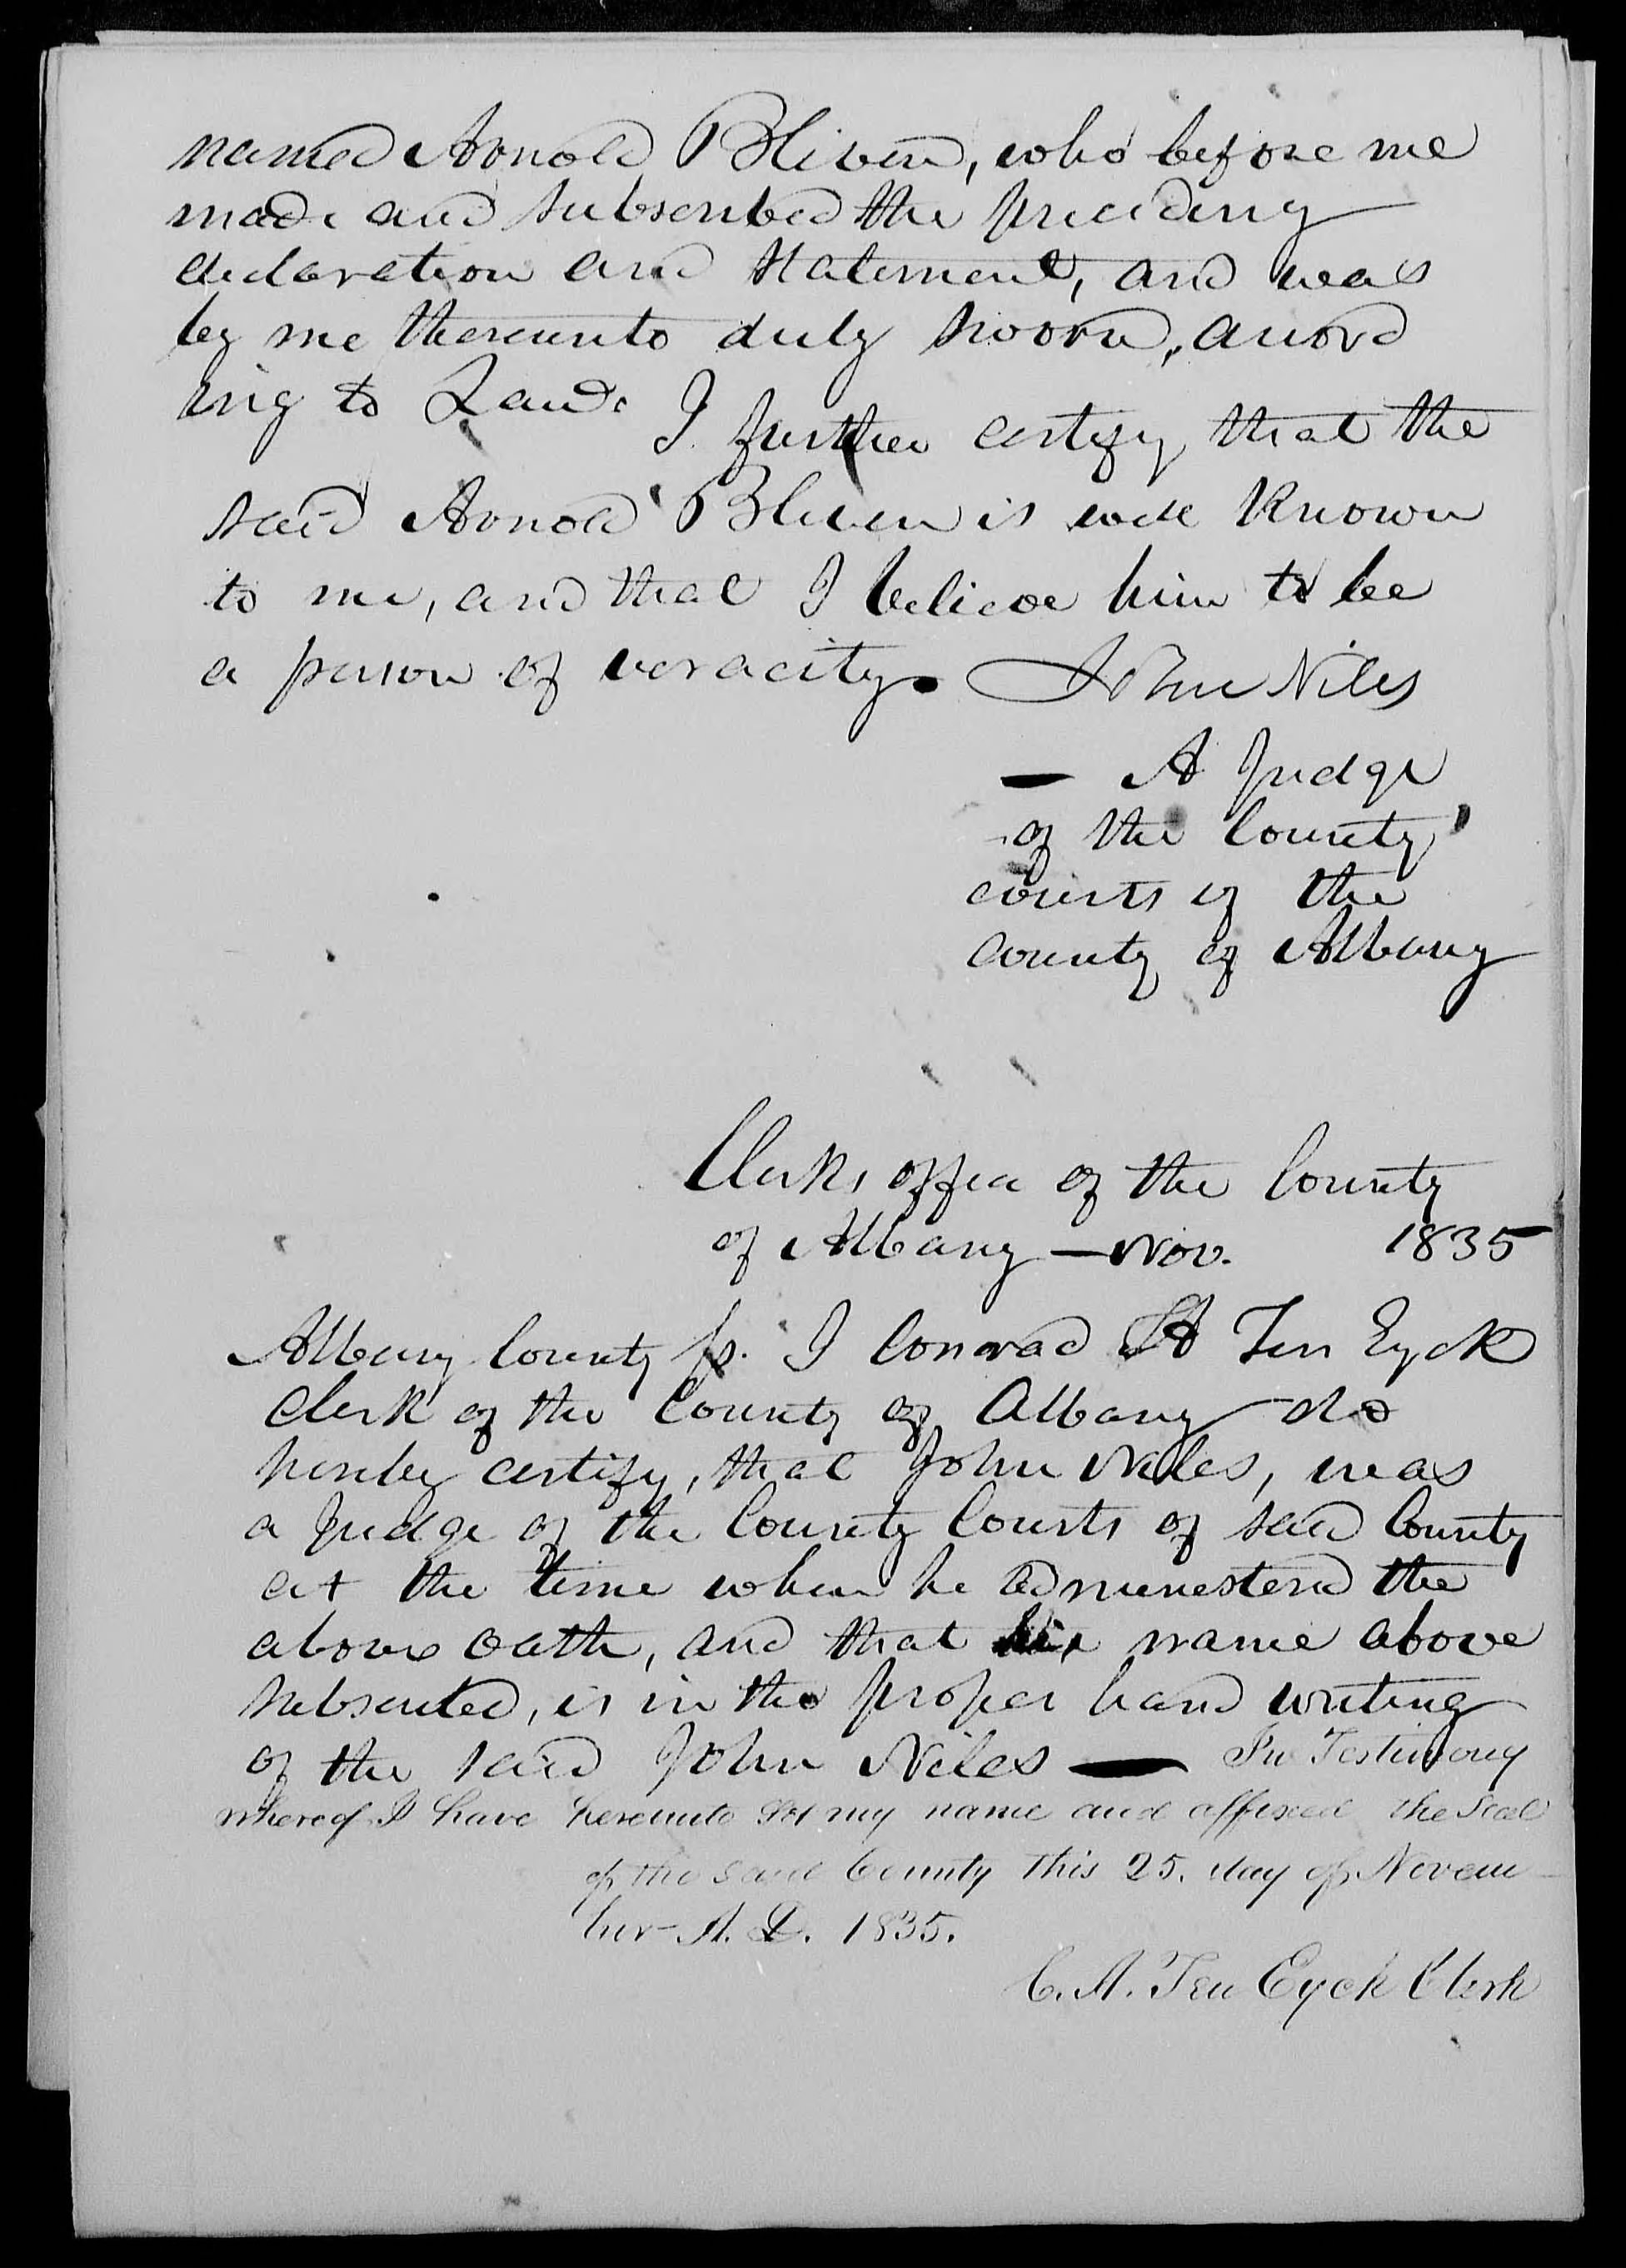 named Arnold Bliven, who before me
made and subscribed the preceding
declaration and statement, and was
by me thereunto duly sworn, accord
ing to Law. I further certify that the
said Arnold Bliven is well known
to me, and that I believe him to be
a person of veracity. John Niles
— A Judge
of the County
courts of the
County of Albany
Clerks office of the County
of Albany — Nov. 1835
Albany County ss. I Conrad A Ten Eyck
Clerk of the County of Albany do
hereby certify, that John Niles, was
a Judge of the County Courts of said County
at the time when he administered the
above oath, and that his name above
subscribed, is in the proper hand writing
of the said John Niles — In Testimony
whereof I have hereunto set my name and affixed the Seal
of the said County this 25. day of Novem
ber A. D. 1835.
C. A. Ten Eyck Clerk